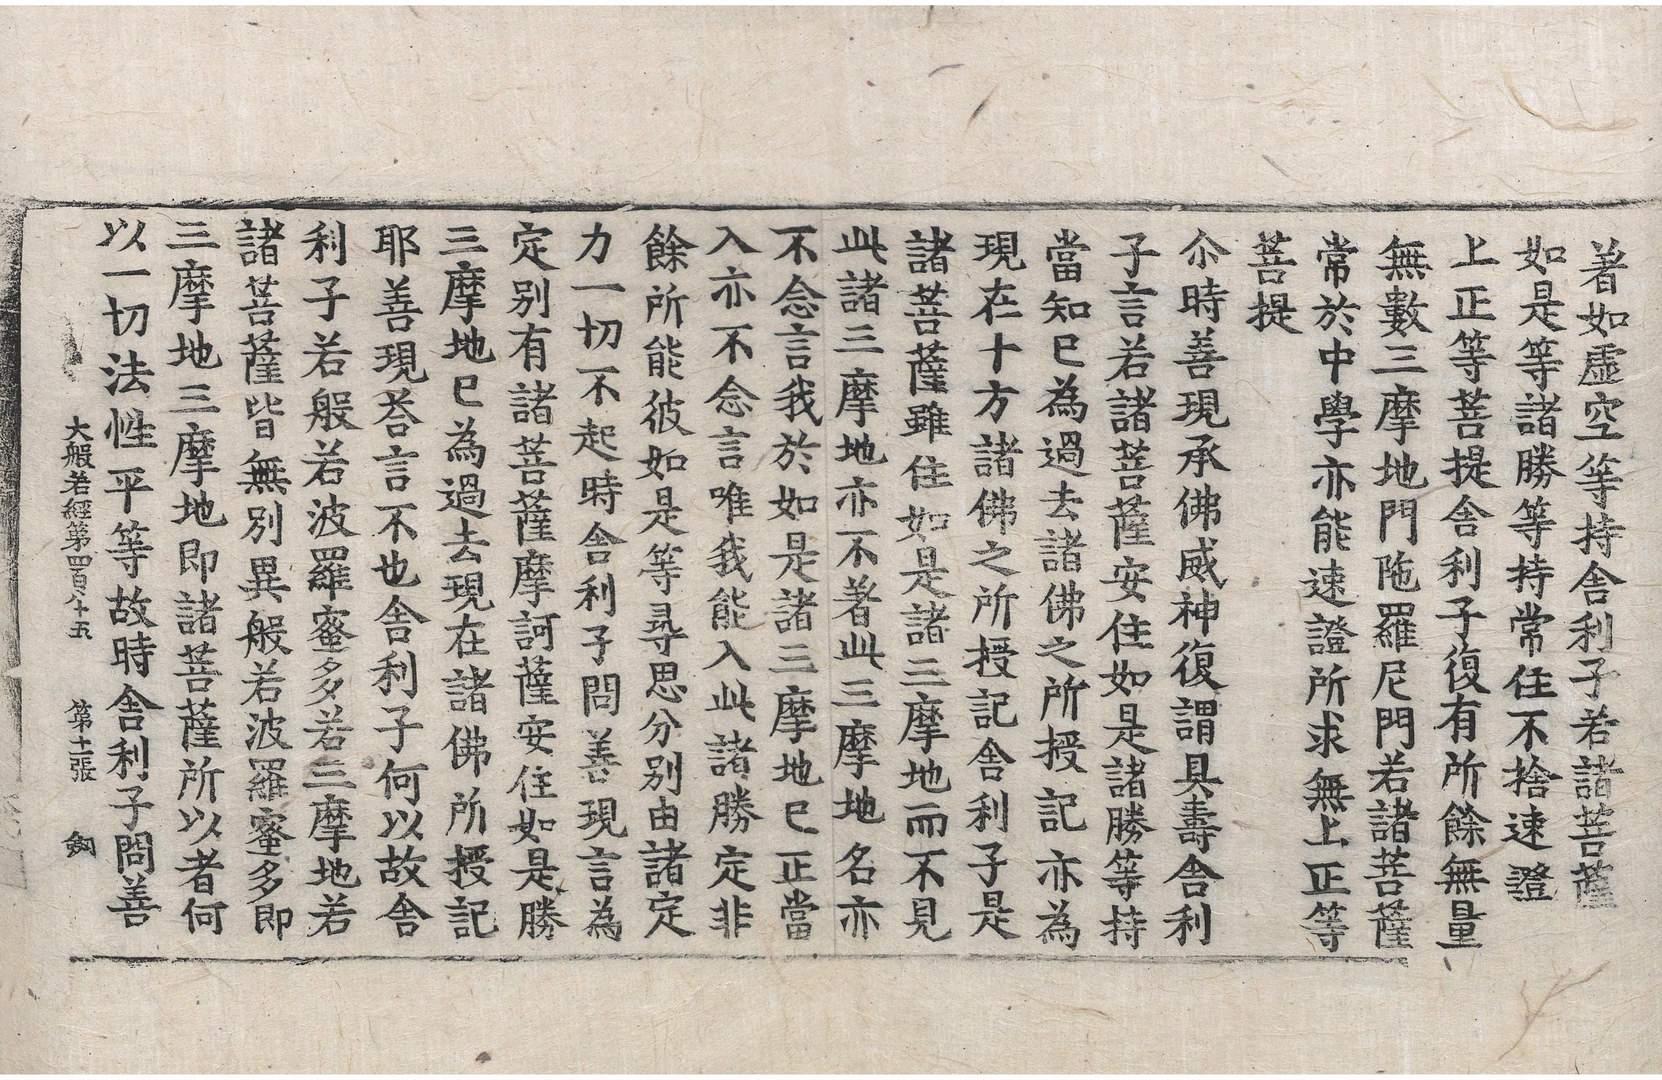 著如虛空等持舍利子若諸菩薩
如是等諸勝等持常住不捨速證
上正等菩提舍利子復有所餘無量
無數三摩地門陁羅尼門若諸菩薩
常於中學亦能速證所求無上正等
菩提
尒時善現承佛威神復謂具壽舍利
子言若諸菩薩安住如是諸勝等持
當知已為過去諸佛之所授記亦為
現在十方諸佛之所授記舍利子是
諸菩薩雖住如是諸三摩地而不見
此諸三摩地亦不著此三摩地名亦
不念言我於如是諸三摩地已正當
入亦不念言唯我能入此諸勝定非
餘所能彼如是等尋思分別由諸定
力一切不起時舍利子問善現言為
定別有諸菩薩摩訶薩安住如是勝
三摩地已為過去現在諸佛所授記
耶善現荅言不也舍利子何以故舍
利子若般若波羅蜜多若三摩地若
諸菩薩皆無別異般若波羅蜜多即
三摩地三摩地即諸菩薩所以者何
以一切法性平等故時舍利子問善
大般若經第四百八十五 第十二張